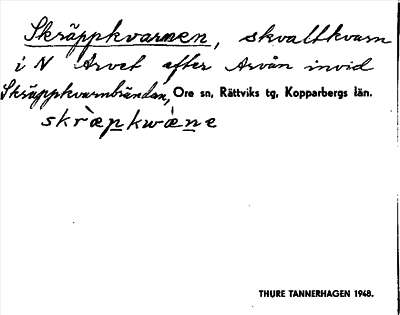 Skräppkvarnen, skvaltkvarn
i N Arvet efter Arvån invid
Skräppkvarnbrändan, Ore sn, Rättviks tg, Kopparbergs län.
skræ̀pkwæ̀ne
THURE TANNERHAGEN 1948.